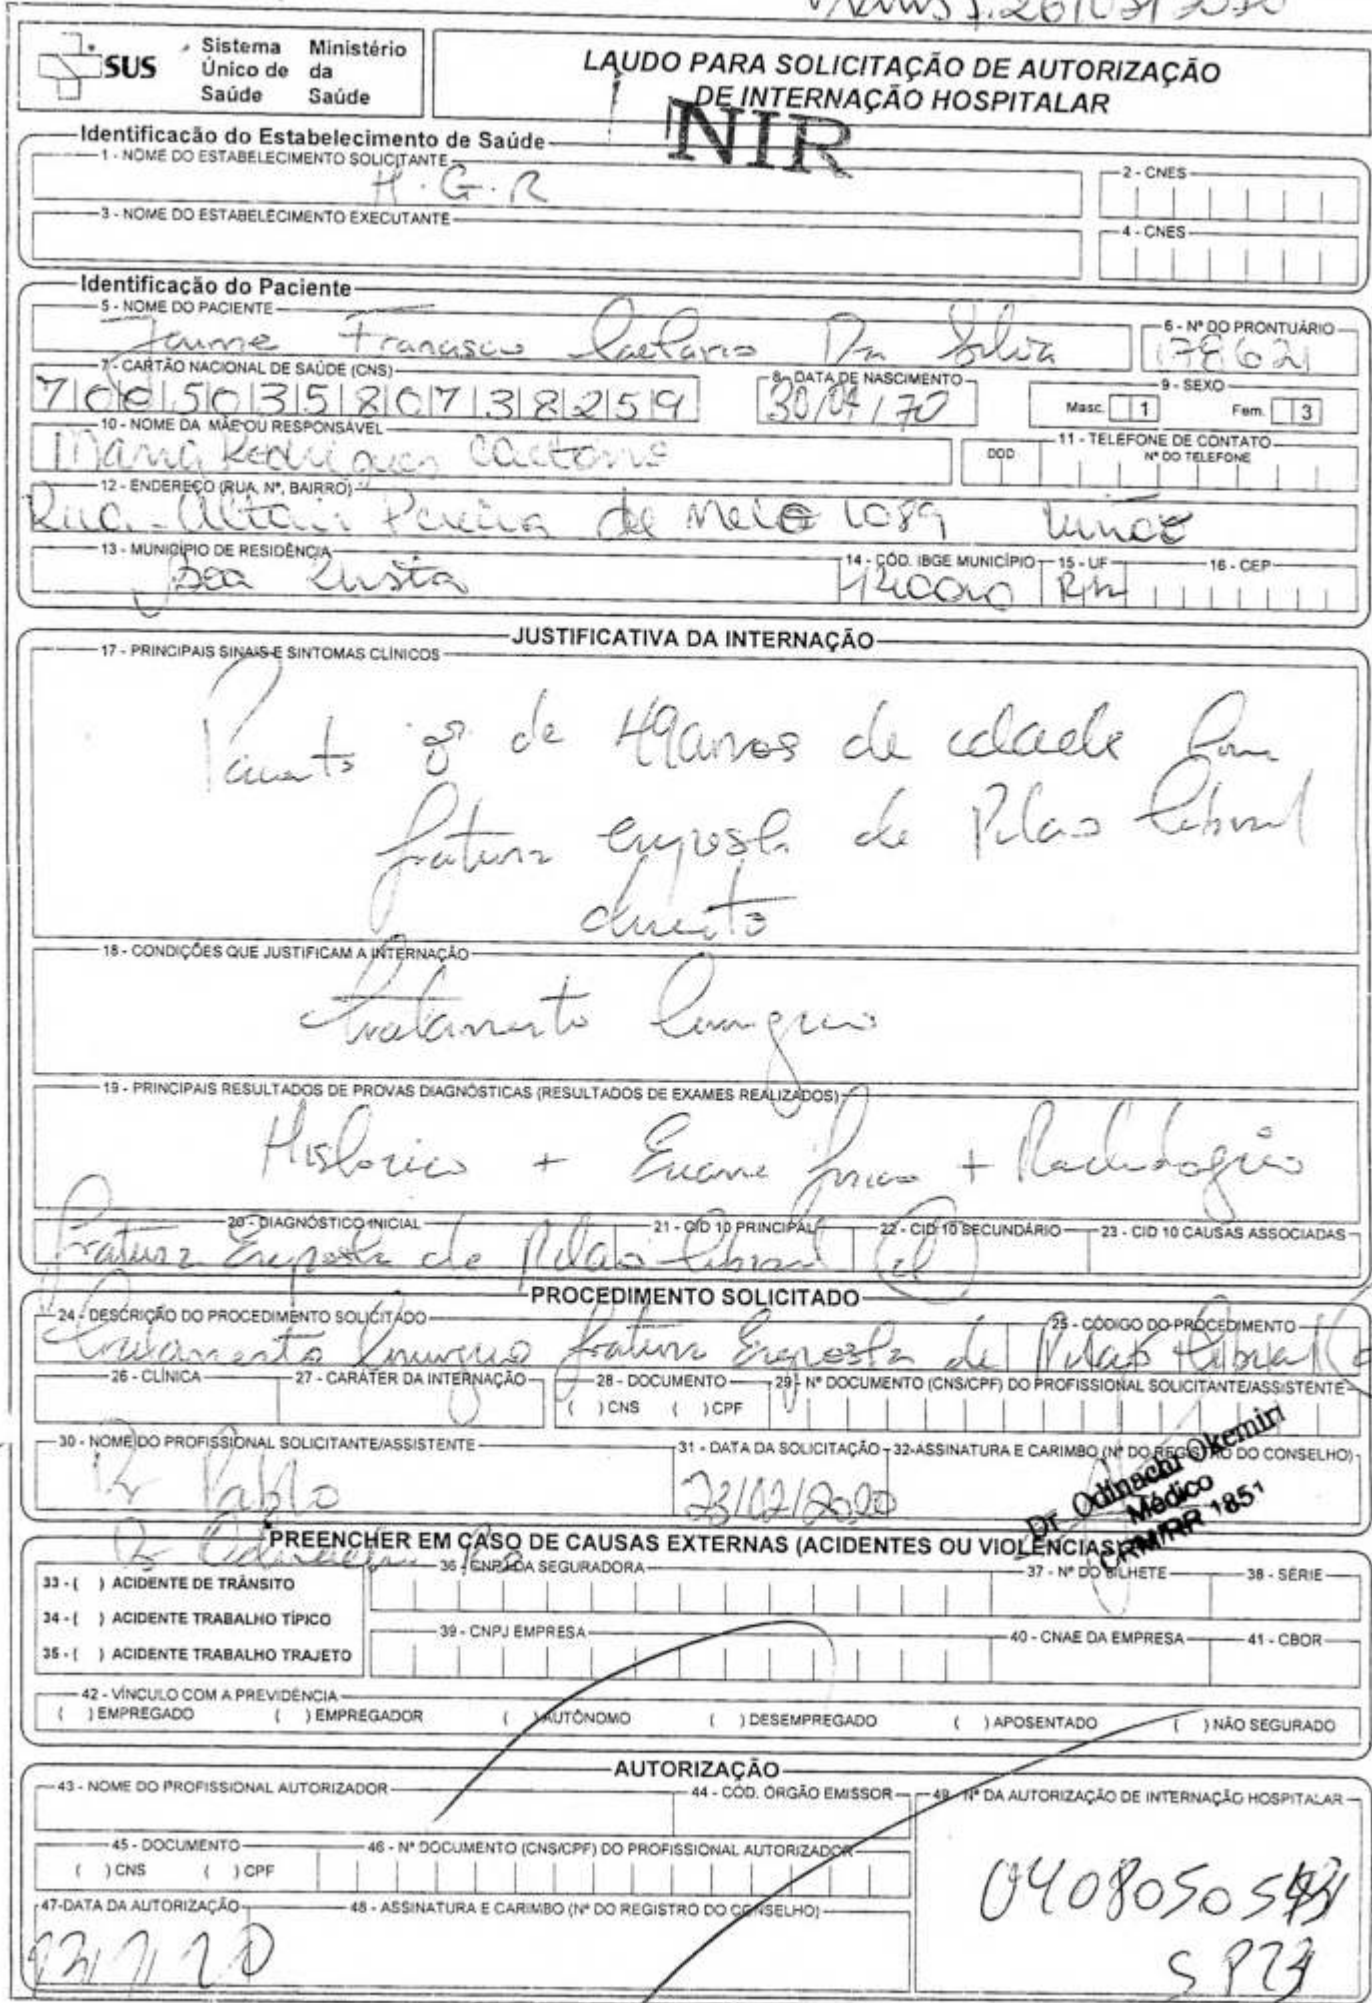 SUS
Sistema Único de Saúde
Ministério da Saúde
LAUDO PARA SOLICITAÇÃO DE AUTORIZAÇÃO
DE INTERNAÇÃO HOSPITALAR
NIR
Identificação do Estabelecimento de Saúde
1 - NOME DO ESTABELECIMENTO SOLICITANTE
H.G.R
2 - CNES
3 - NOME DO ESTABELECIMENTO EXECUTANTE
4 - CNES
Identificação do Paciente
5 - NOME DO PACIENTE
Francisco Caetano Da Silva
6 - Nº DO PRONTUÁRIO
178621
7 - CARTÃO NACIONAL DE SAÚDE (CNS)
700503580738259
8 - DATA DE NASCIMENTO
30/04/70
9 - SEXO
Masc. 1 Fem. 3
10 - NOME DA MÃE OU RESPONSÁVEL
Maria Rodrigues Caetano
11 - TELEFONE DE CONTATO
DDD Nº DO TELEFONE
12 - ENDEREÇO (RUA, Nº, BAIRRO)
Rua - Altair Pereira de Melo 1089
13 - MUNICÍPIO DE RESIDÊNCIA
Boa Vista
14 - CÓD. IBGE MUNICÍPIO
15 - UF
RR
16 - CEP
JUSTIFICATIVA DA INTERNAÇÃO
17 - PRINCIPAIS SINAIS E SINTOMAS CLÍNICOS
Paciente de 49 anos de idade com
fratura exposta de Pilao tibial
direito
18 - CONDIÇÕES QUE JUSTIFICAM A INTERNAÇÃO
tratamento Cirurgico
19 - PRINCIPAIS RESULTADOS DE PROVAS DIAGNÓSTICAS (RESULTADOS DE EXAMES REALIZADOS)
Historico + Exame fisico + Radiologico
20 - DIAGNÓSTICO INICIAL
21 - CID 10 PRINCIPAL
22 - CID 10 SECUNDÁRIO
23 - CID 10 CAUSAS ASSOCIADAS
fratura Exposta de Pilao tibial (d)
PROCEDIMENTO SOLICITADO
24 - DESCRIÇÃO DO PROCEDIMENTO SOLICITADO
25 - CÓDIGO DO PROCEDIMENTO
tratamento Cirurgico fratura Exposta de Pilao tibial
26 - CLÍNICA
27 - CARÁTER DA INTERNAÇÃO
28 - DOCUMENTO
( ) CNS ( ) CPF
29 - Nº DOCUMENTO (CNS/CPF) DO PROFISSIONAL SOLICITANTE/ASSISTENTE
30 - NOME DO PROFISSIONAL SOLICITANTE/ASSISTENTE
Dr Pablo
31 - DATA DA SOLICITAÇÃO
23/02/2020
32-ASSINATURA E CARIMBO (Nº DO REGISTRO DO CONSELHO)
Dr. Odinachi Okemiri
Médico
CRM/RR 1851
PREENCHER EM CASO DE CAUSAS EXTERNAS (ACIDENTES OU VIOLÊNCIAS)
33 - ( ) ACIDENTE DE TRÂNSITO
36 - CNPJ DA SEGURADORA
37 - Nº DO BILHETE
38 - SÉRIE
34 - ( ) ACIDENTE TRABALHO TÍPICO
39 - CNPJ EMPRESA
40 - CNAE DA EMPRESA
41 - CBOR
35 - ( ) ACIDENTE TRABALHO TRAJETO
42 - VÍNCULO COM A PREVIDÊNCIA
( ) EMPREGADO ( ) EMPREGADOR ( ) AUTÔNOMO ( ) DESEMPREGADO ( ) APOSENTADO ( ) NÃO SEGURADO
AUTORIZAÇÃO
43 - NOME DO PROFISSIONAL AUTORIZADOR
44 - CÓD. ÓRGÃO EMISSOR
49 - Nº DA AUTORIZAÇÃO DE INTERNAÇÃO HOSPITALAR
45 - DOCUMENTO
( ) CNS ( ) CPF
46 - Nº DOCUMENTO (CNS/CPF) DO PROFISSIONAL AUTORIZADOR
47-DATA DA AUTORIZAÇÃO
48 - ASSINATURA E CARIMBO (Nº DO REGISTRO DO CONSELHO)